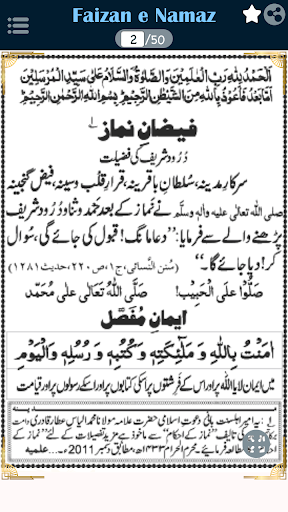 Faizan e Namaz
2 /50
اَلْحَمْدُ لِلّٰهِ رَبِّ الْعٰلَمِيْنَ وَالصَّلٰوةُ وَالسَّلَامُ عَلٰى سَيِّدِ الْمُرْسَلِيْنَ
اَمَّا بَعْدُ فَاَعُوْذُ بِاللّٰهِ مِنَ الشَّيْطٰنِ الرَّجِيْمِ بِسْمِ اللّٰهِ الرَّحْمٰنِ الرَّحِيْمِ
فیضانِ نماز
دُرُود شریف کی فضیلت
سرکارِ مدینہ، سُلطانِ باقرینہ، قرارِ قلب وسینہ، فیض گنجینہ
صلی اللہ تعالٰی علیہ واٰلہٖ وسلّم نے نَماز کے بعد حمد و ثنا و دُرُود شریف
پڑھنے والے سے فرمایا: ’’دعا مانگ! قبول کی جائے گی، سُوال
کر! دیا جائے گا۔‘‘ (سُنَنُ النَّسائی، ج ۱، ص ۲۲۰، حدیث ۱۲۸۱)
صَلُّوْا عَلَى الْحَبِيْب! صَلَّى اللّٰهُ تَعَالٰى عَلٰى مُحَمَّد
ایمانِ مُفَصَّل
اٰمَنْتُ بِاللّٰهِ وَ مَلٰٓئِكَتِهٖ وَ كُتُبِهٖ وَ رُسُلِهٖ وَالْيَوْمِ
میں ایمان لایا اللہ پر اور اس کے فَرِشتوں پر اسکی کتابوں پر اور اسکے رسولوں پر اور قیامت